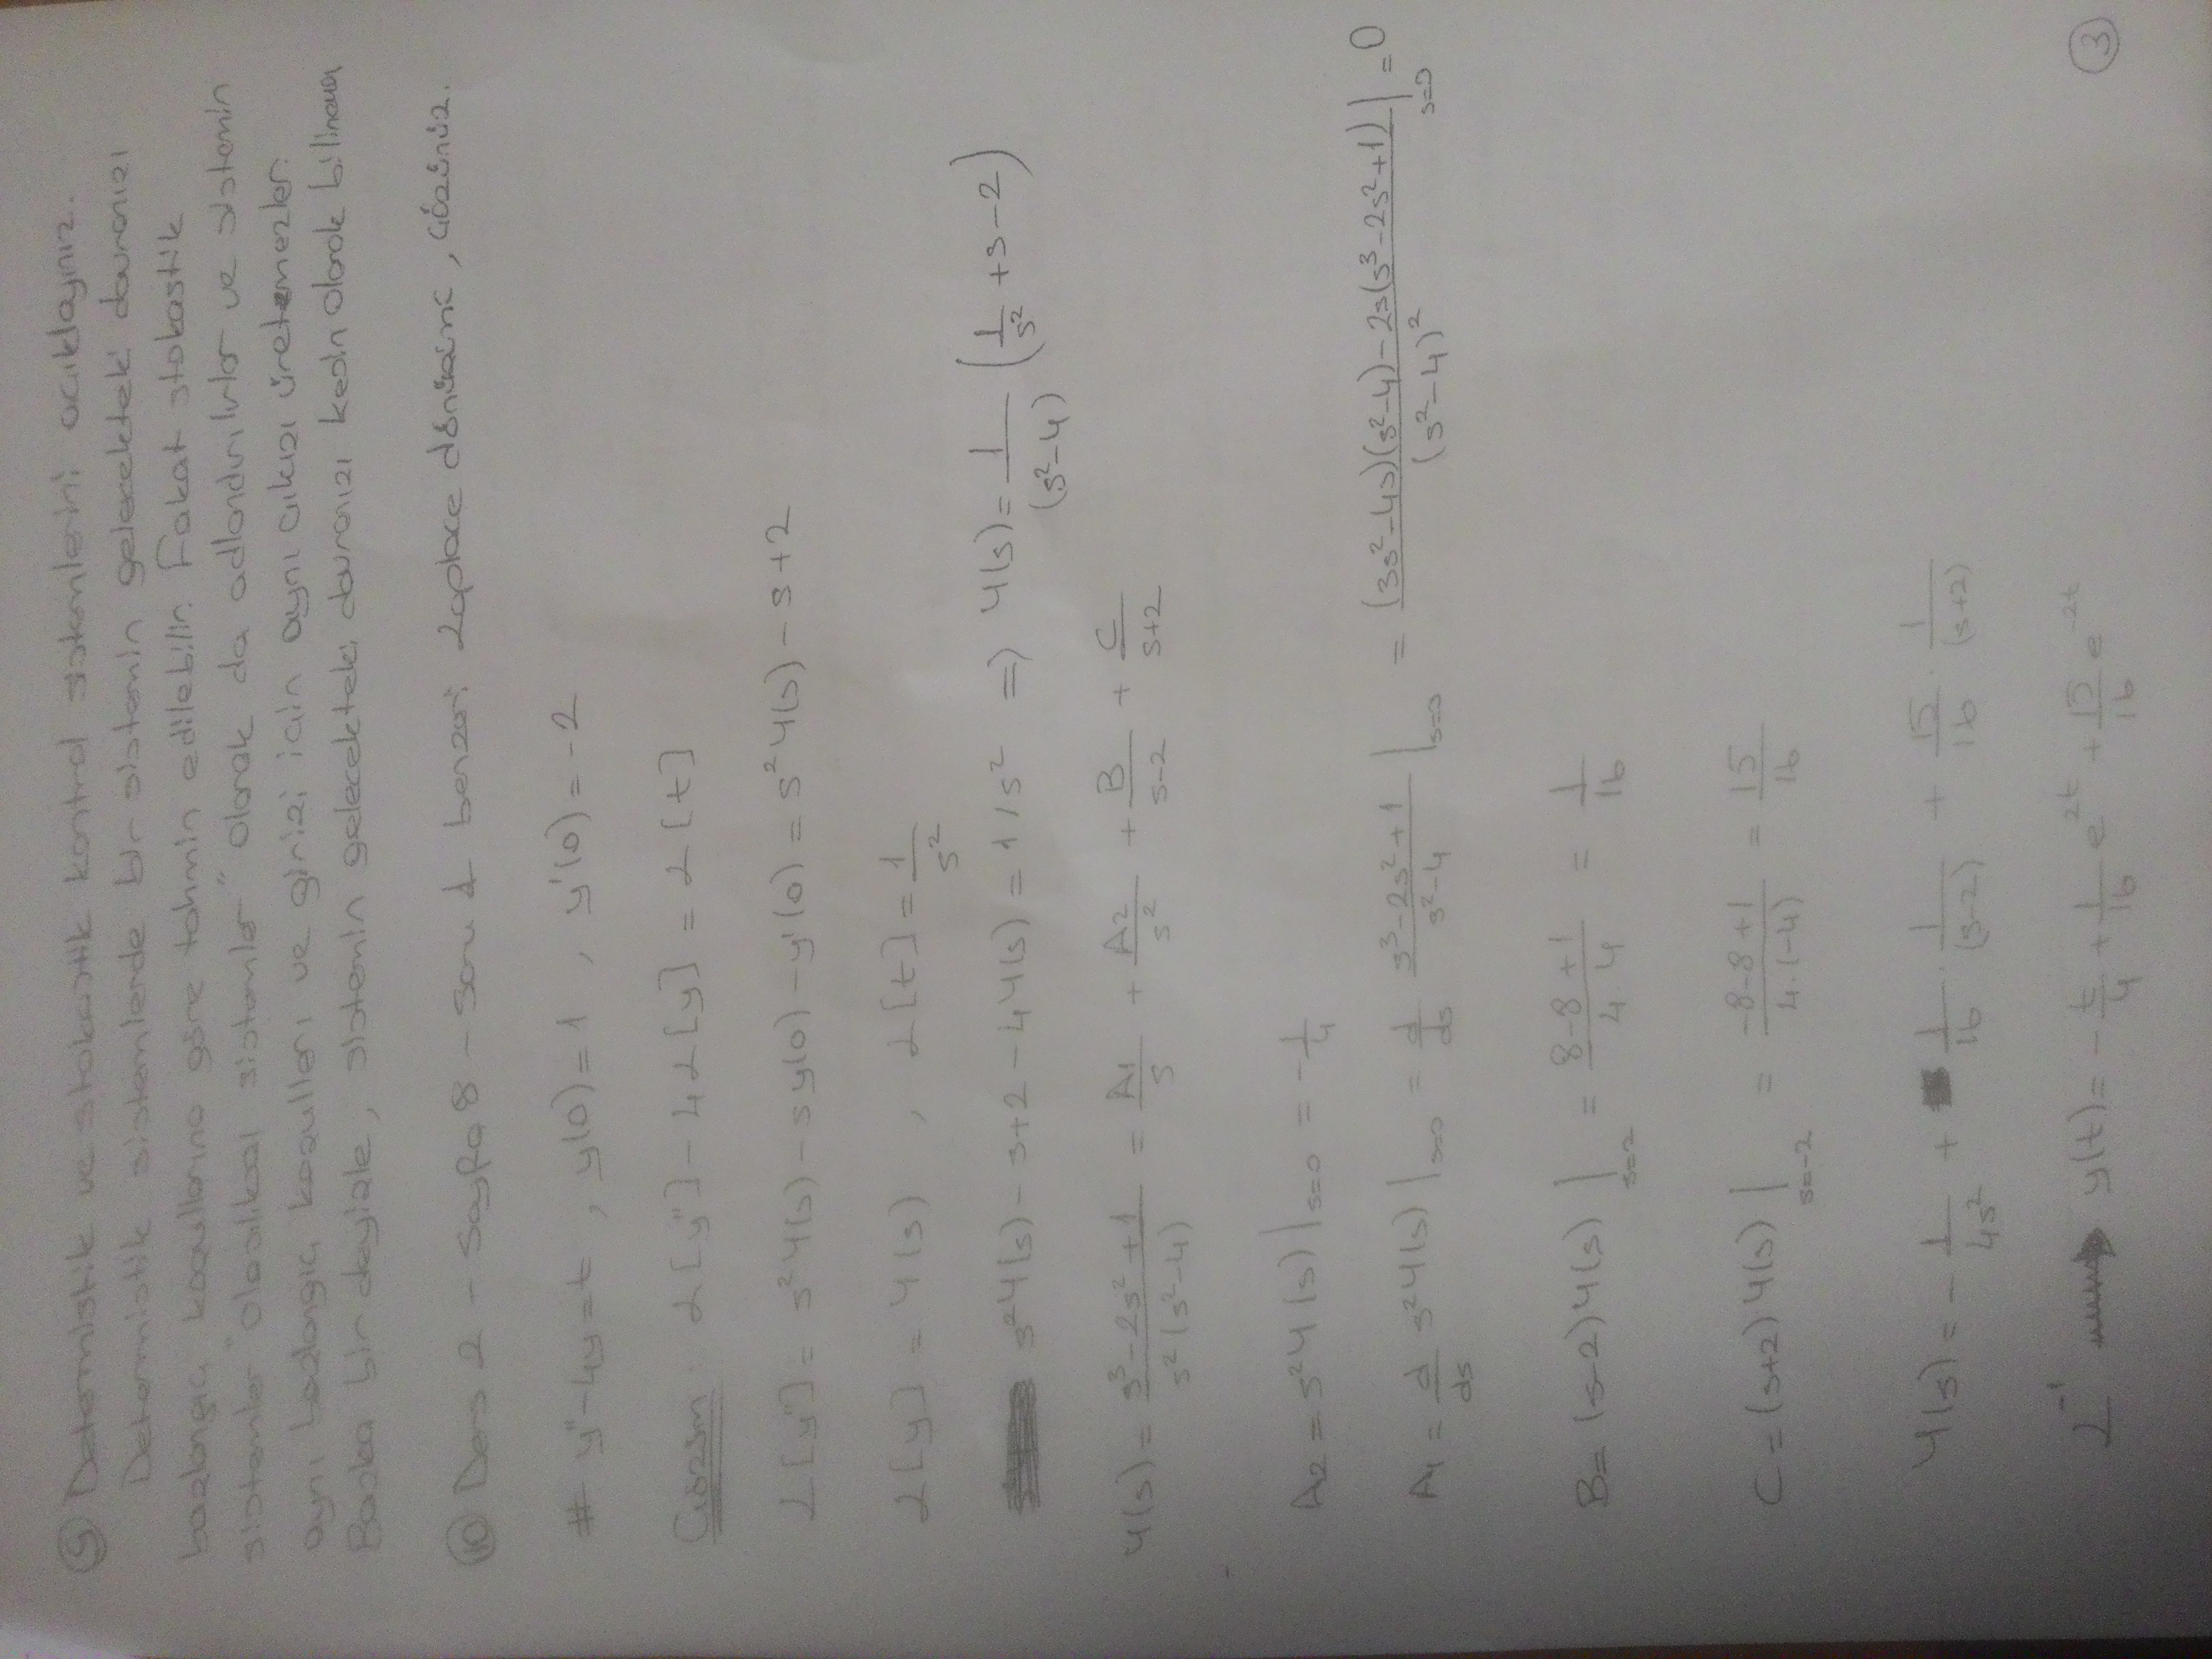 9 Determistik ve stokastik kontrol sistemlerini açıklayınız.
Determistik sistemlerde bir sistemin gelecekteki davranışı
başlangıç koşullarına göre tahmin edilebilir. Fakat stokastik
sistemler "olasılıksal sistemler" olarak da adlandırılırlar ve sistemin
aynı başlangıç koşulları ve girişi için aynı çıkışı üretemezler.
Başka bir deyişle, sistemin gelecekteki davranışı kesin olarak
10 Ders 2 - Sayfa 8 - Soru 1 benzeri Laplace dönüşümü, çözünüz.
# y''-4y=t , y(0)=1 , y'(0)=-2
Çözüm : L[y'']-4L[y]=L[t]
L[y'']= s²Y(s)-sy(0)-y'(0)=s²Y(s)-s+2
L[y]=Y(s) , L[t]=1/s²
s²Y(s)-s+2-4Y(s)=1/s² => Y(s)=1/(s²-4) (1/s²+s-2)
Y(s)= (s³-2s²+1)/(s²(s²-4)) = A₁/s + A₂/s² + B/(s-2) + C/(s+2)
A₂=s²Y(s)|s=0 = -1/4
A₁= d/ds s²Y(s)|s=0 = d/ds (s³-2s²+1)/(s²-4)|s=0 = ((3s²-4s)(s²-4)-2s(s³-2s²+1))/(s²-4)²|s=0 =0
B= (s-2)Y(s)|s=2 = (8-8+1)/(4.4) = 1/16
C=(s+2)Y(s)|s=-2 = (-8-8+1)/(4.(-4)) = 15/16
Y(s)= -1/4s² + 1/16 . 1/(s-2) + 15/16 . 1/(s+2)
L⁻¹ y(t)= -t/4 + 1/16 e^2t + 15/16 e^-2t
3